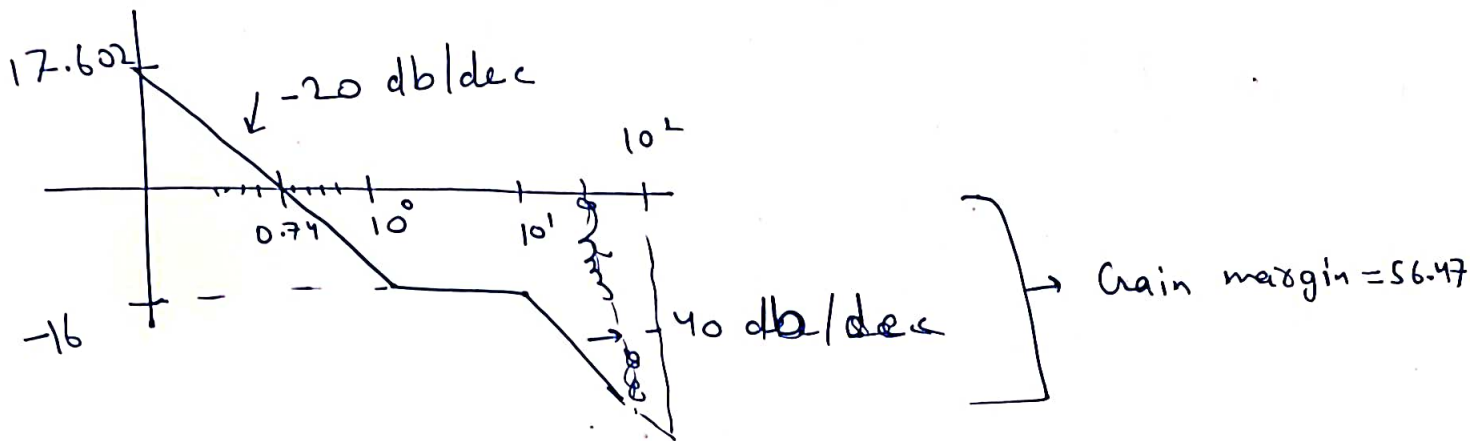 17.602
-20 db/dec
10²
0.74
10⁰
10¹
-16
40 db/dec
Gain margin = 56.47